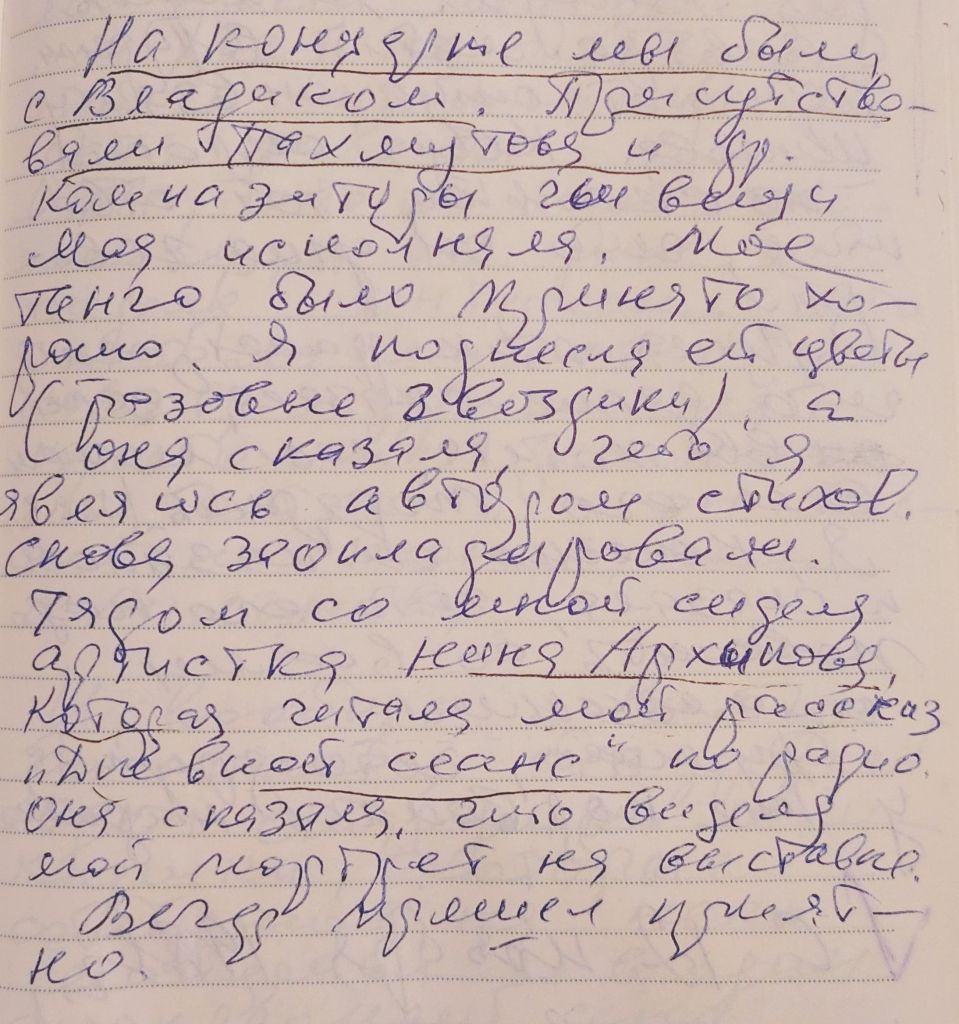 На концерте мы были
с Владиком. Присутство-
вали Пахмутова и др.
композиторы чьи вещи
Мая исполняла. Мое
танго было принято хо-
рошо. Я поднесла ей цветы
(розовые гвоздики), а
она сказала, что я
являюсь автором стихов.
снова зааплодировали.
Рядом со мной сидела
артистка Нина Архипова,
которая читала мой рассказ
"Дневной сеанс" по радио.
Она сказала, что видела
мой портрет на выставке.
Вечер прошел прият-
но.